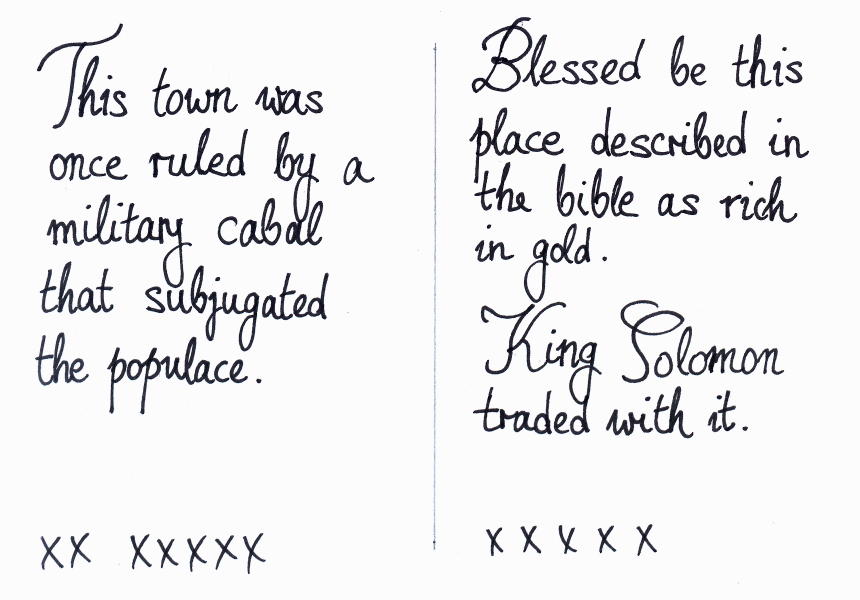 This town was
once ruled by a
military cabal
that subjugated
the populace.
XX XXXXX
Blessed be this
place described in
the bible as rich
in gold.
King Solomon
traded with it.
X X X X X